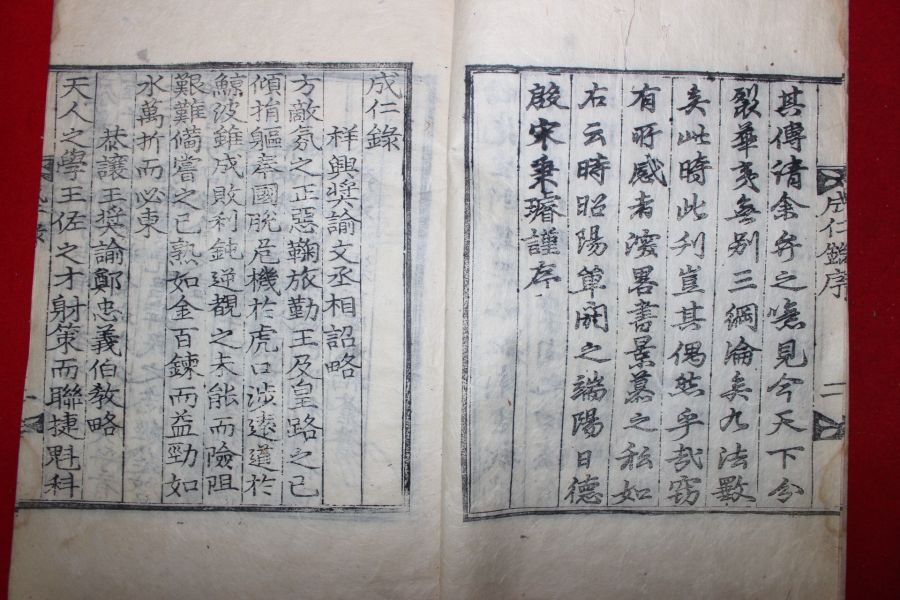 成仁錄序
二
其傳請余弁之噫見今天下分
裂華夷無別三綱淪矣九法斁
矣此時此刊豈其偶然乎哉竊
有所感者潑畧書景慕之私如
右云時昭陽單閼之端陽日德
殷宋秉璿謹序
成仁錄
祥興奬諭文丞相詔略
方敵氛之正惡鞠旅勤王及皇路之已
傾捐軀奉國脫危機於虎口涉遠道於
鯨波雖成敗利鈍逆覩之未能而險阻
艱難備嘗之已熟如金百鍊而益勁如
水萬折而必東
恭讓王奬諭鄭忠義伯敎略
天人之學王佐之才射策而聯捷魁科